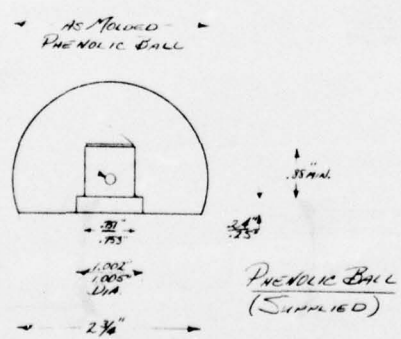 AS MOLDED
PHENOLIC BALL
.88" MIN.
.24"
.25"
.753"
1.002"
1.005"
DIA.
PHENOLIC BALL
(SUPPLIED)
2 3/4"